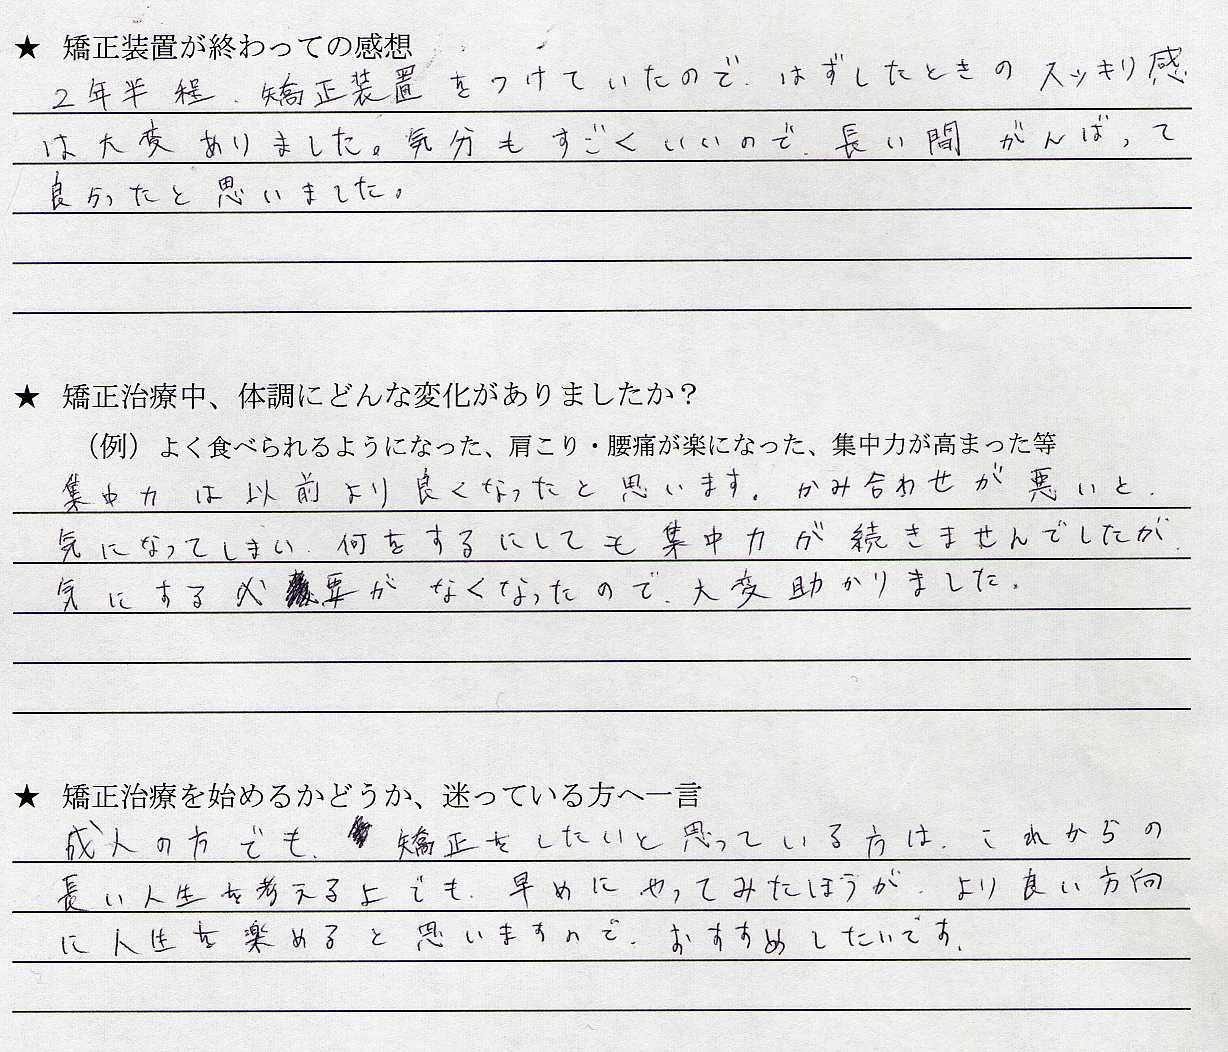 ★ 矯正装置が終わっての感想
2年半程、矯正装置をつけていたので、はずしたときのスッキリ感
は大変ありました。気分もすごくいいので、長い間がんばって
良かったと思いました。
★ 矯正治療中、体調にどんな変化がありましたか？
（例）よく食べられるようになった、肩こり・腰痛が楽になった、集中力が高まった等
集中力は以前より良くなったと思います。かみ合わせが悪いと、
気になってしまい、何をするにしても集中力が続きませんでしたが、
気にする必要がなくなったので、大変助かりました。
★ 矯正治療を始めるかどうか、迷っている方へ一言
成人の方でも、矯正をしたいと思っている方は、これからの
長い人生を考える上でも、早めにやってみたほうが、より良い方向
に人生を楽めると思いますので、おすすめしたいです。